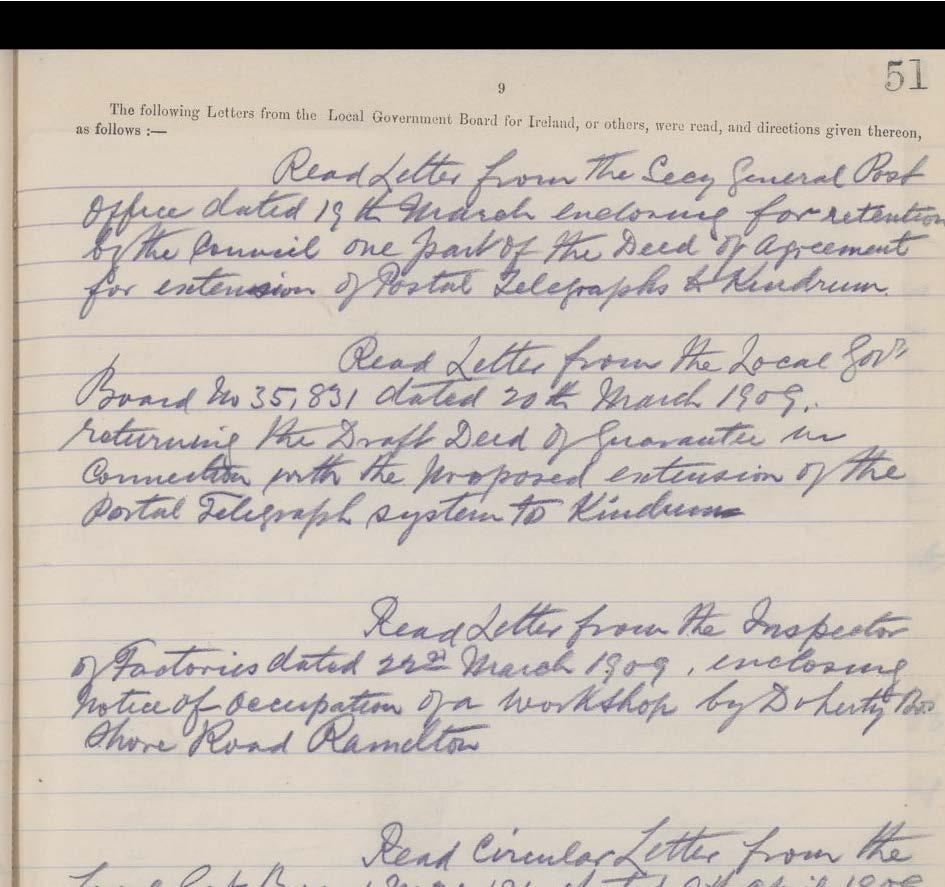 51
9
The following Letters from the Local Government Board for Ireland, or others, were read, and directions given thereon,
as follows :—
Read Letter from the Secy General Post
Office dated 19th March enclosing for retention
by the Council one part of the Deed of Agreement
for extension of Postal Telegraphs to Kindrum.
Read Letter from the Local Govt
Board No 35,831 dated 20th March 1909,
returning the Draft Deed of Guarantee in
Connection with the proposed extension of the
Postal Telegraph system to Kindrum
Read Letter from the Inspector
of Factories dated 22nd March 1909, enclosing
Notice of Occupation of a workshop by Doherty Bros
Shore Road Ramelton
Read Circular Letter from the